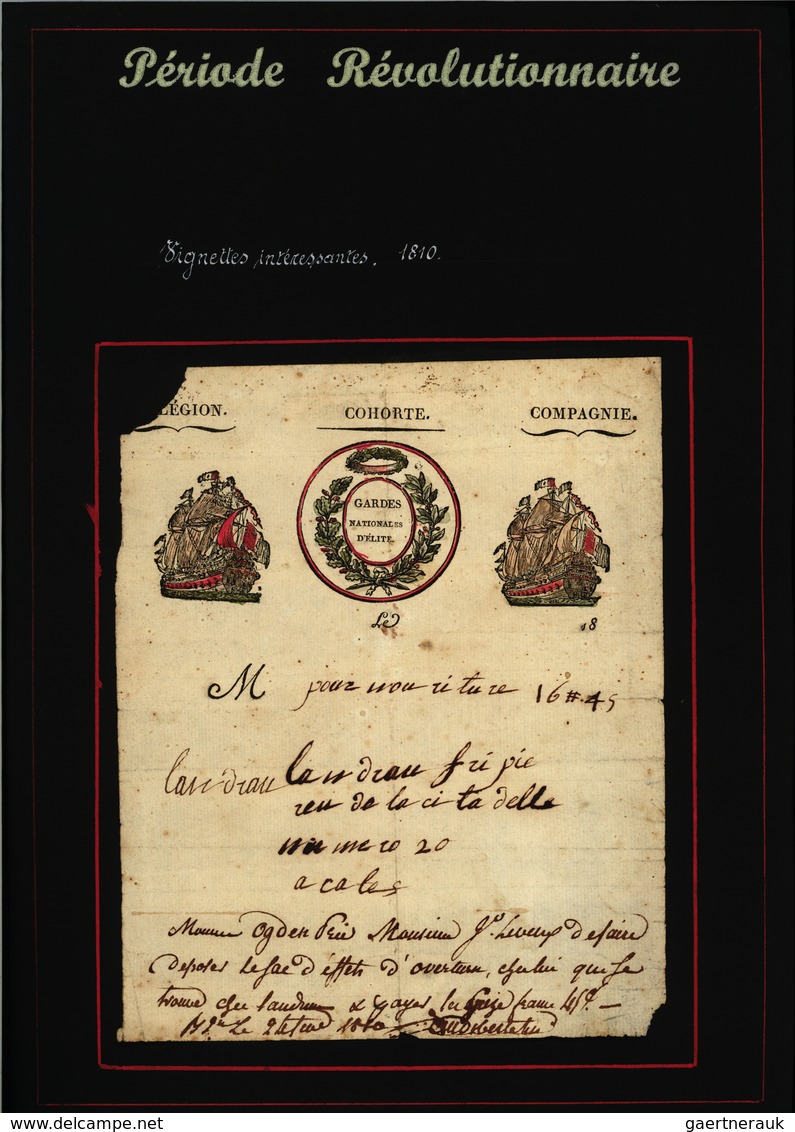 Période Révolutionnaire
Vignettes intéressantes. 1810.
LÉGION. COHORTE. COMPAGNIE.
GARDES
NATIONALES
D'ÉLITE.
Le 18
M pour nouriture 16#.4s
landrau landrau fripie
reu de la citadelle
numero 20
a cales
Monsieur Ogden Prie Monsieur Jo. Leveux de faire
deposer le sac d'effets d' , chez lui qui se
trouve chez landrau & payer les seize franc 45c. —
Le 1810
delcampe.net gaertnerauk